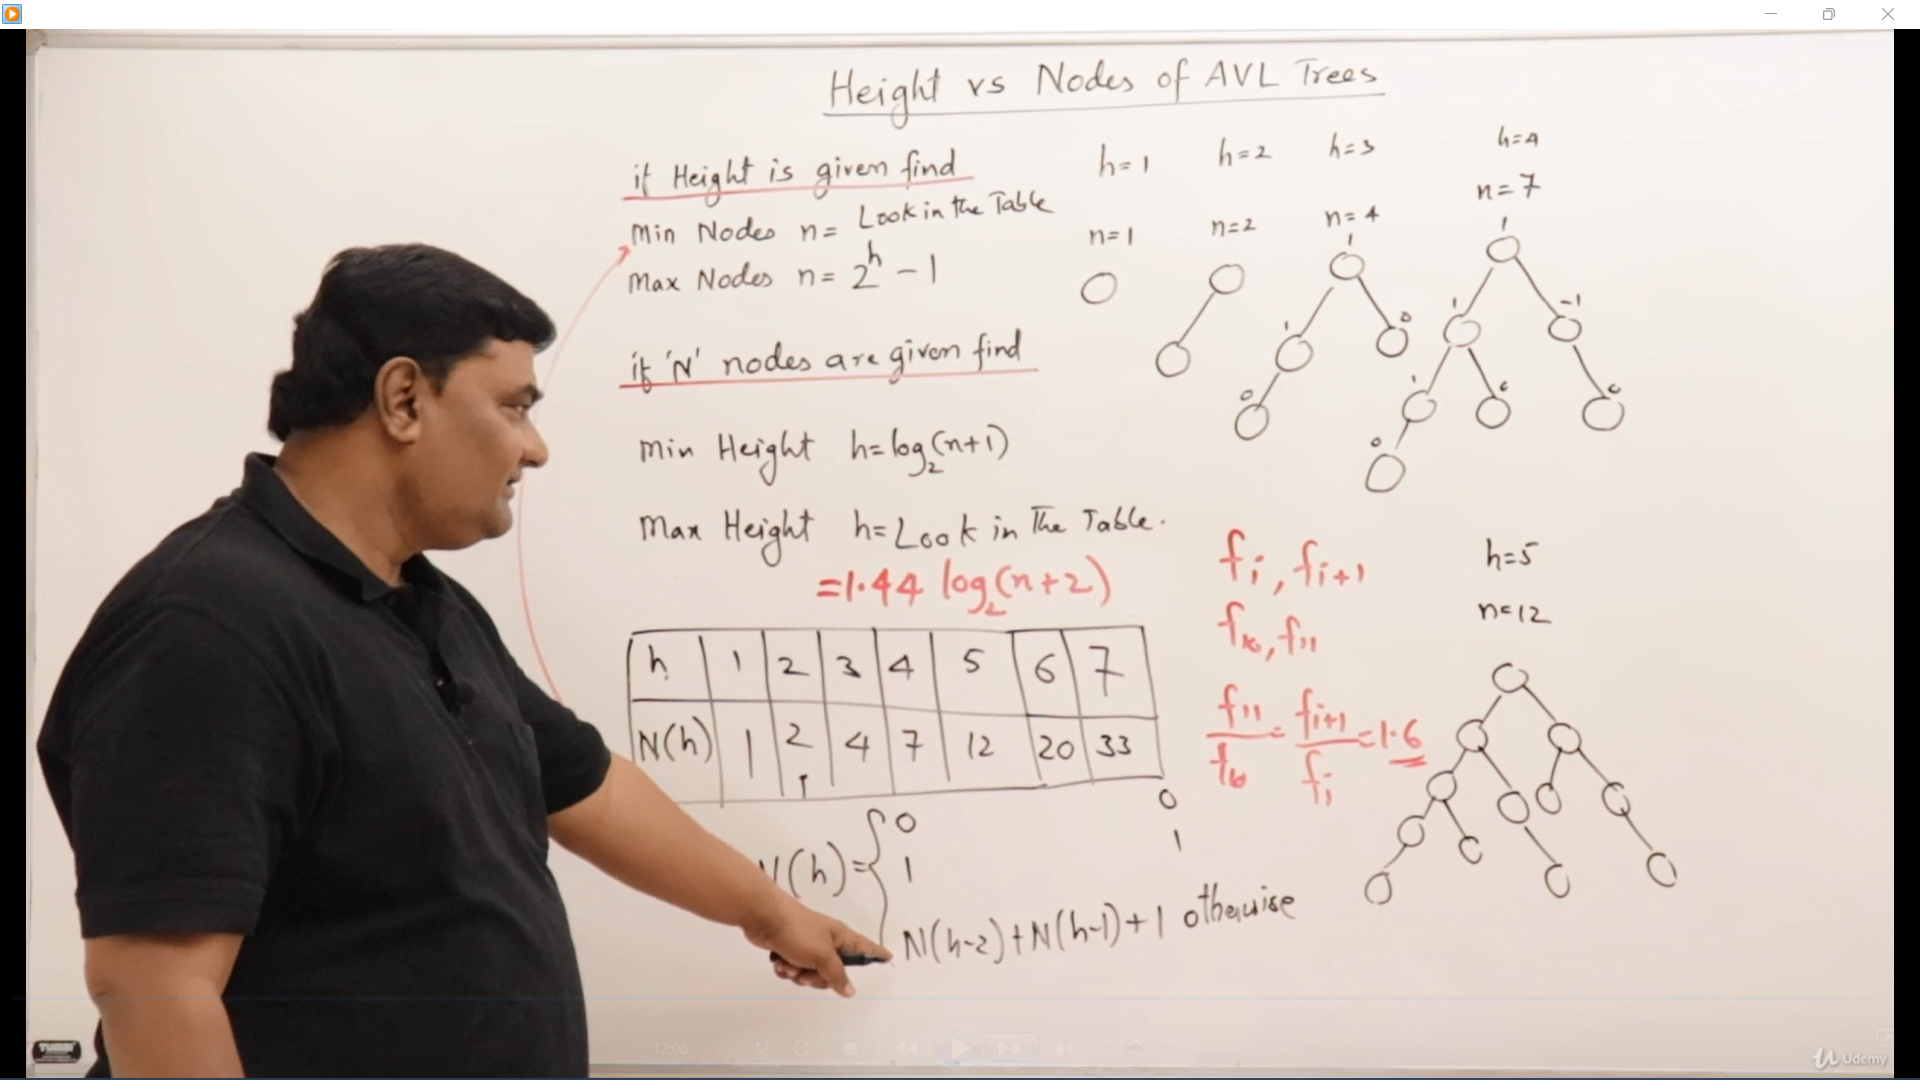 Height vs Nodes of AVL Trees
if Height is given find
Min Nodes n = Look in the Table
Max Nodes n = 2^h - 1
if 'N' nodes are given find
Min Height h = log₂(n+1)
Max Height h = Look in The Table.
= 1.44 log₂(n+2)
h 1 2 3 4 5 6 7
N(h) 1 2 4 7 12 20 33
N(h) = { 0 0
1 1
N(h-2) + N(h-1) + 1 otherwise
h=1 h=2 h=3 h=4
n=1 n=2 n=4 n=7
1
1 0
0
1
1 -1
1 0 0
0
fi, fi+1
f10, f11
f11/f10 = fi+1/fi = 1.6
h=5
n=12
12:06
Udemy